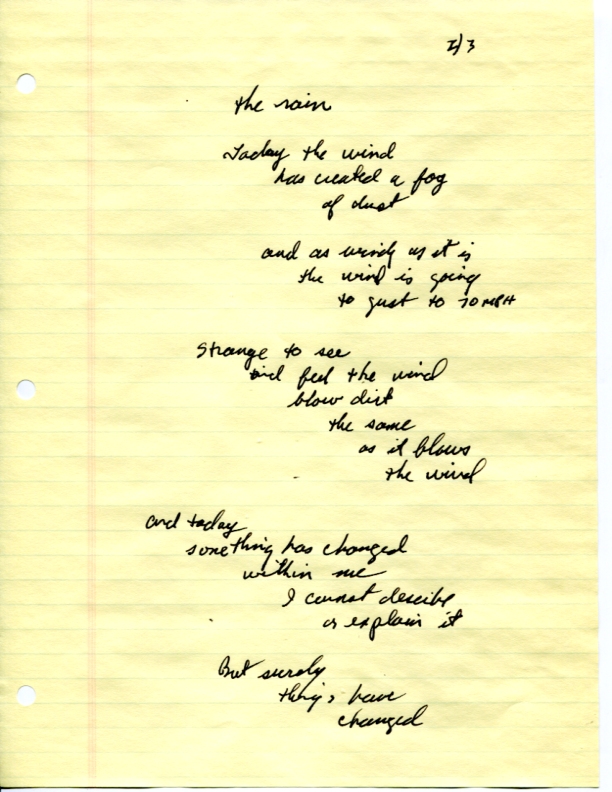 I/3
the rain
Today the wind
has created a fog
of dust
and as windy as it is
the wind is going
to gust to 70 MPH
Strange to see
and feel the wind
blow dirt
the same
as it blows
the wind
and today
something has changed
within me
I cannot describe
or explain it
But surely
things have
changed